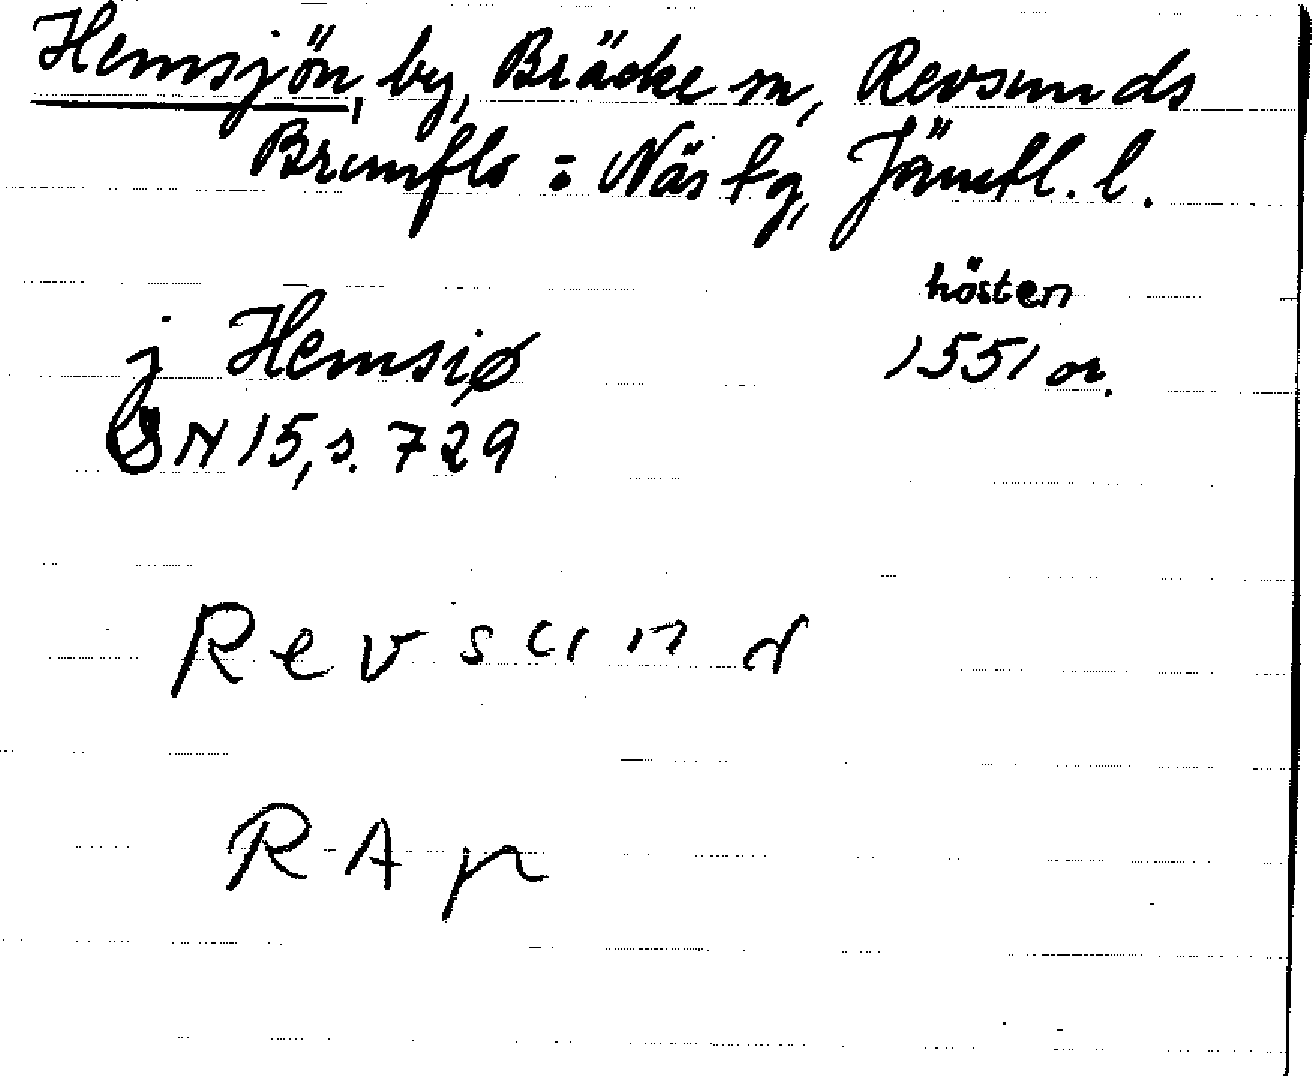 Hemsjön, by, Bräcke sn, Revsunds
Brunflo = Näs tg, Jämtl. l.
hösten
j Hemsiø 1551 or.
DN 15, s. 729
Revsund
RAp